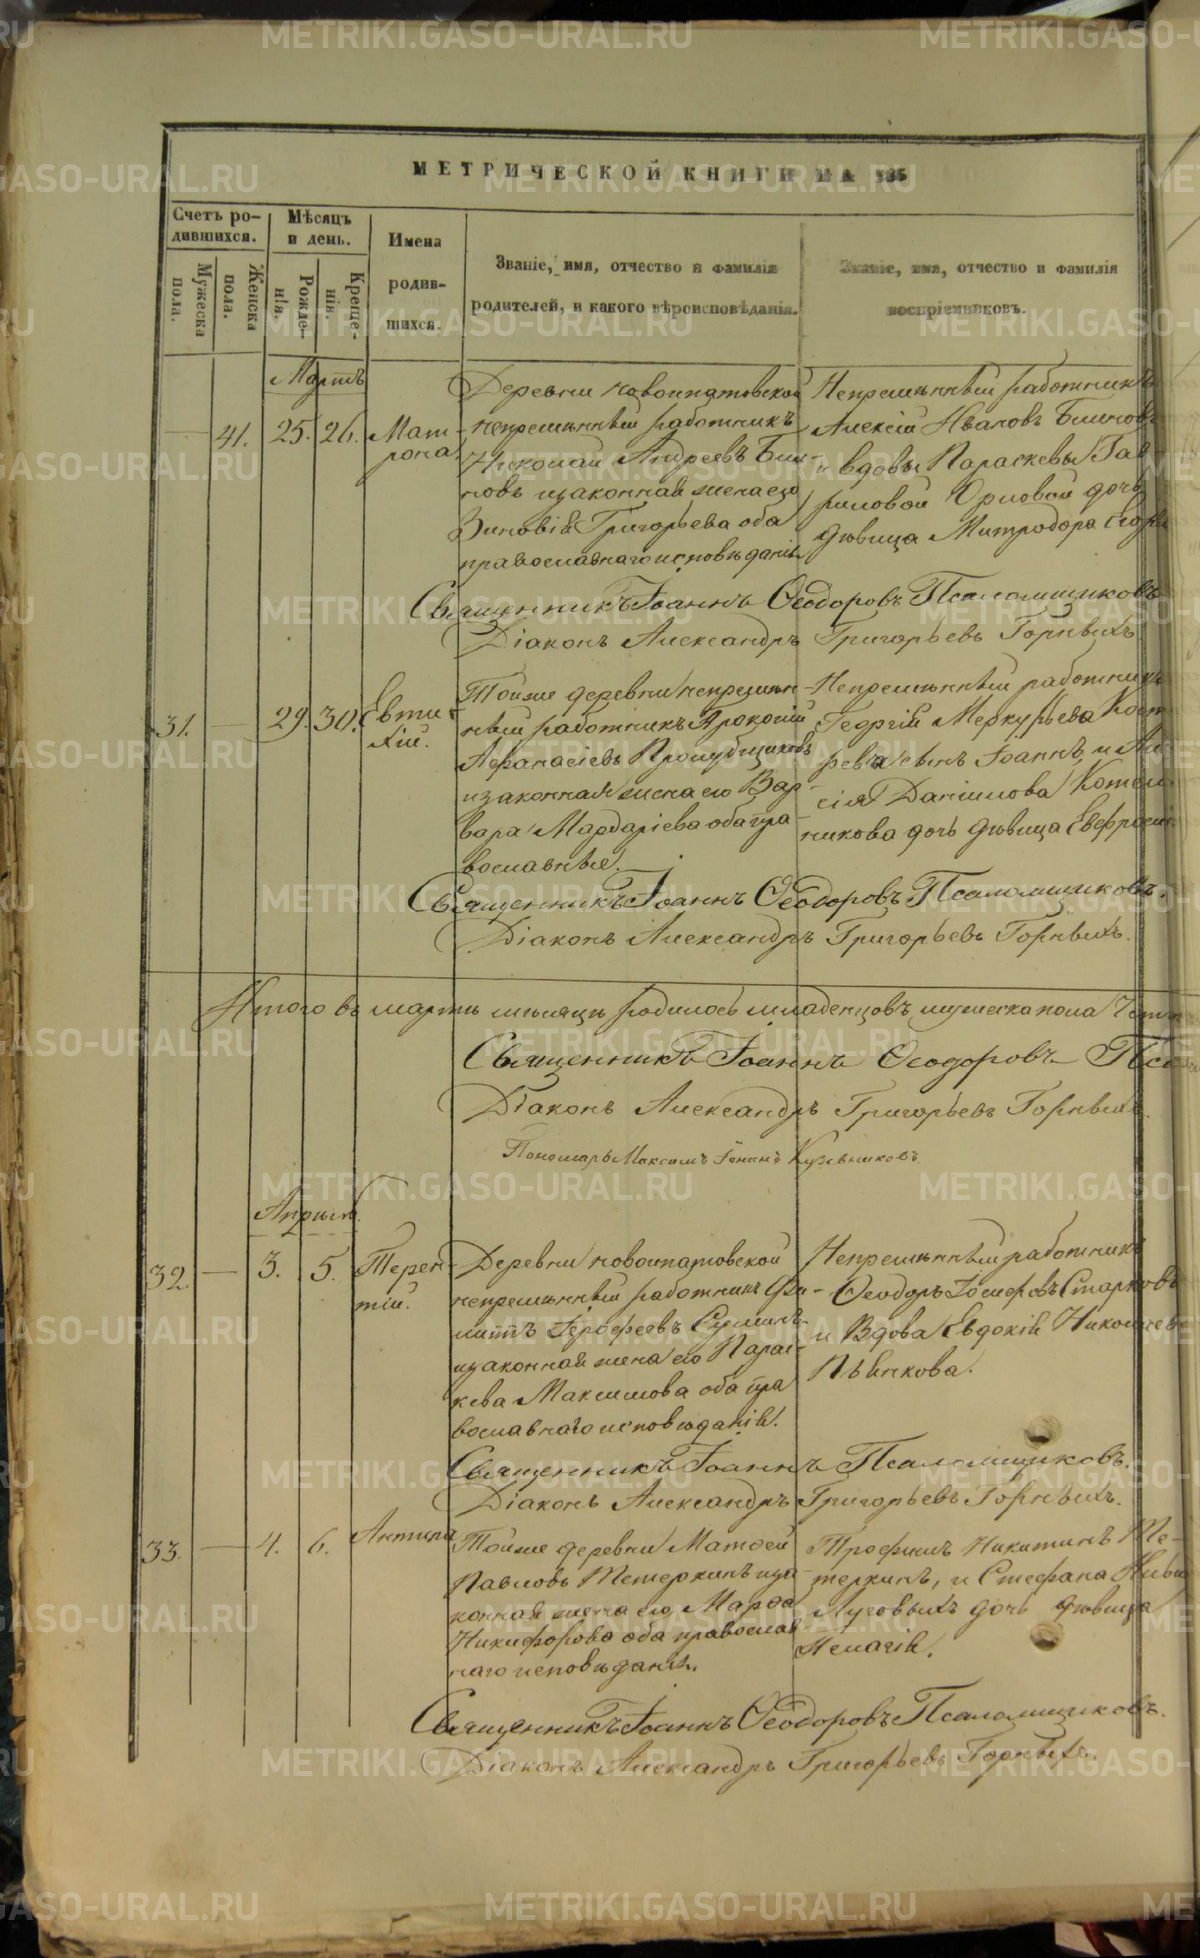 МЕТРИЧЕСКОЙ КНИГИ НА 185
Счетъ ро-
дившихся.
Мужеска
пола.
Женска
пола.
Мѣсяцъ
и день.
Рожде-
нія.
Креще-
нія.
Имена
родив-
шихся.
Званіе, имя, отчество и фамилія
родителей, и какого вѣроисповѣданія.
Званіе, имя, отчество и фамилія
воспріемниковъ.
Мартъ
41. 25. 26. Мат-
рона
Деревни новоипатовской
непремѣнный работникъ
Николай Андреевъ
новъ и законная жена его
Зиновія Григорьева оба
православнаго исповѣданія
Непремѣнный работникъ
Алексій Ивановъ
и вдовы Параскевы Гав-
риловой Орловой дочь
дѣвица Митродора
Священникъ Іоаннъ Ѳеодоровъ Псаломщиковъ
Діаконъ Александръ Григорьевъ Горныхъ
31. 29. 30. Евти-
хій.
Тойже деревни непремѣн-
ный работникъ Прокопій
Афанасіевъ Пролубщиковъ
и законная жена его Вар-
вара Мардаріева оба пра-
вославные.
Непремѣнный работникъ
Георгій Меркурьева
сынъ Іоаннъ и
Даніилова
никова дочь дѣвица
Священникъ Іоаннъ Ѳеодоровъ Псаломщиковъ.
Діаконъ Александръ Григорьевъ Горныхъ.
Итого въ мартѣ мѣсяцѣ родилось младенцовъ мужеска пола
Священникъ Іоаннъ Ѳеодоровъ
Діаконъ Александръ Григорьевъ Горныхъ.
Пономарь Максимъ
Апрѣль.
32. 3. 5. Терен-
тій.
Деревни новоипатовской
непремѣнный работникъ Фи-
липпъ Ерофеевъ
и законная жена его Парас-
кева Максимова оба пра
вославнаго исповѣданія.
Непремѣнный работникъ
Ѳеодоръ Іосифовъ Старковъ
и Вдова Евдокія
Пьянкова.
Священникъ Іоаннъ Псаломщиковъ.
Діаконъ Александръ Григорьевъ Горныхъ.
33. 4. 6. Антипа
Тойже деревни Матѳей
Павловъ Тетеркинъ и за-
конная жена его Марѳа
Никифорова оба православ
наго исповѣданія.
Трофимъ Никитинъ Те-
теркинъ, и Стефана
Луговыхъ дочь дѣвица
Пелагія.
Священникъ Іоаннъ Ѳеодоровъ Псаломщиковъ.
Діаконъ Александръ Григорьевъ Горныхъ.
METRIKI.GASO-URAL.RU